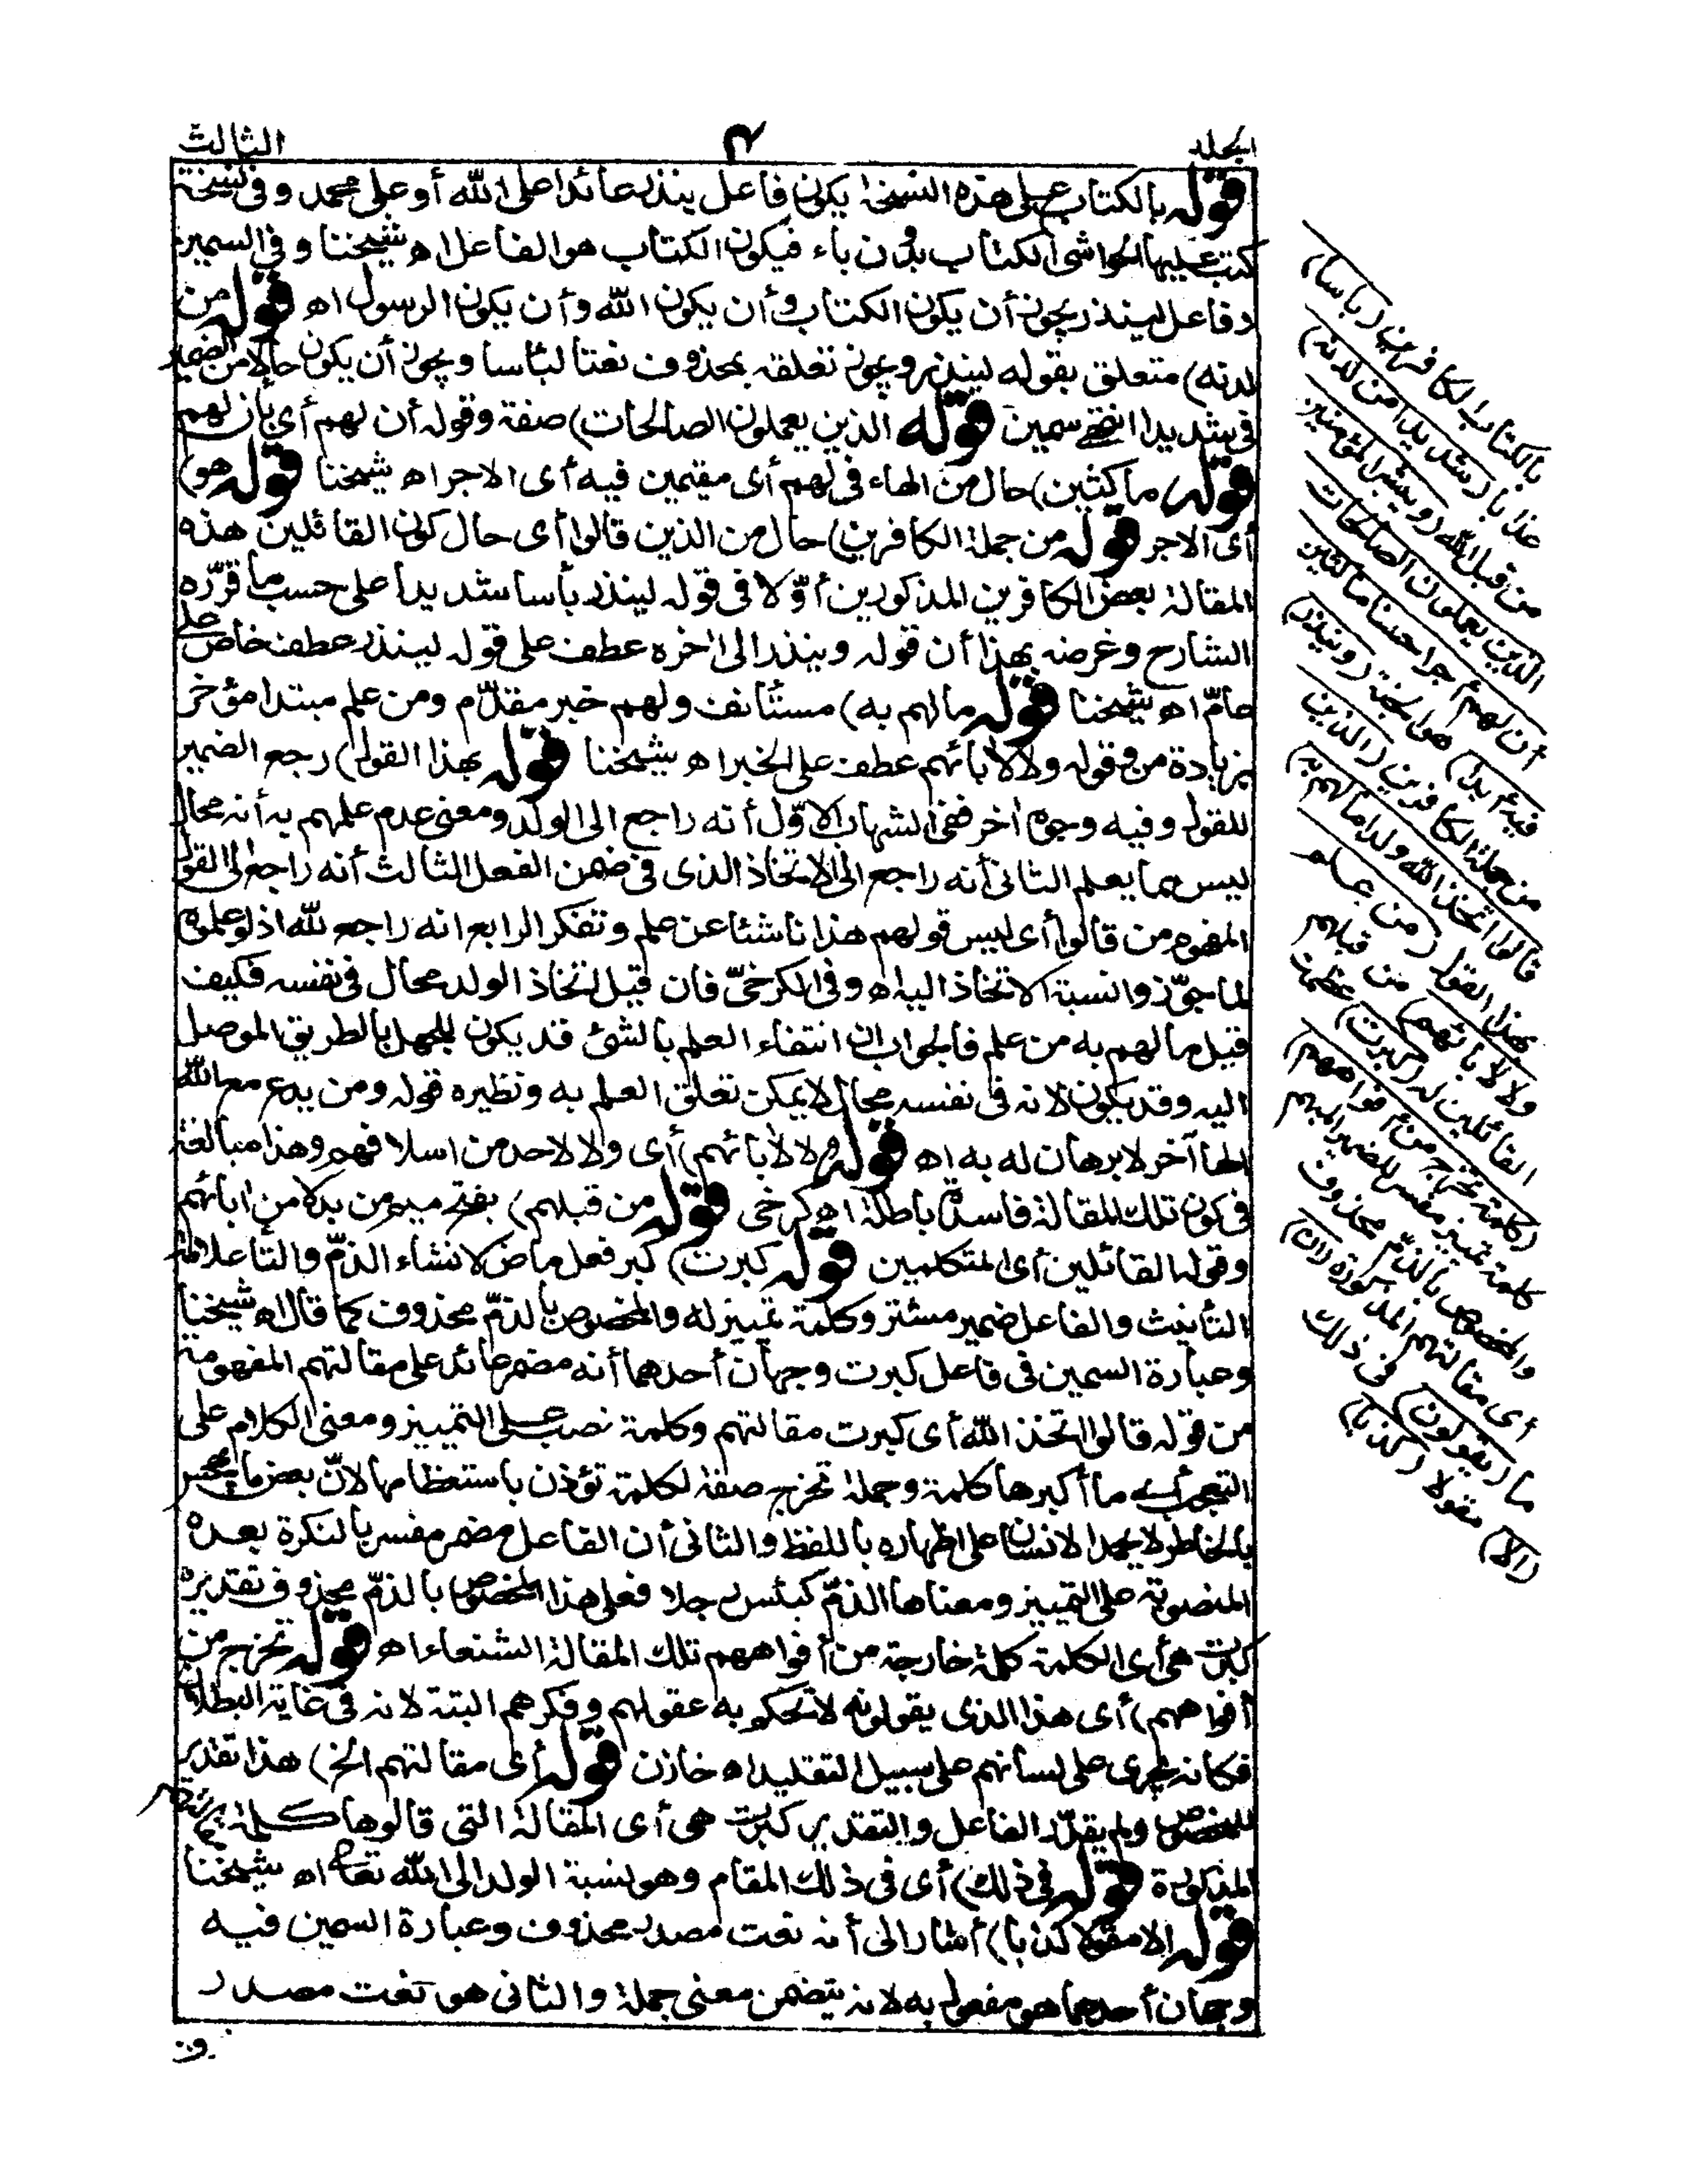 الجلد
٣
الثالث
قوله بالكتاب) على هذه النسخة يكون فاعل ينذر عائدا على الله أو على محمد وفى نسخة
كتب عليها الحواشى الكتاب بدون باء فيكون الكتاب هو الفاعل اه شيخنا وفى السمين
وفاعل لينذر يجوز أن يكون الكتاب وأن يكون الله وأن يكون الرسول اه قوله من
لدنه) متعلق بقوله لينذر ويجوز تعلقه بمحذوف نعتا لبأسا ويجوز أن يكون حالا من الضمير
فى شديدا انتهى سمين قوله الذين يعملون الصالحات) صفة وقوله أن لهم أى بأن لهم
قوله ماكثين) حال من الهاء فى لهم أى مقيمين فيه أى الاجر اه شيخنا قوله هو)
أى الاجر قوله من جملة الكافرين) حال من الذين قالوا أى حال كون القائلين هذه
المقالة بعض الكافرين المذكورين أوّلا فى قوله لينذر بأسا شديدا على حسب ما قرّره
الشارح وغرضه بهذا أن قوله وينذر الى اخره عطف على قوله لينذر عطف خاص على
عامّ اه شيخنا قوله ما لهم به) مستأنف ولهم خبر مقدّم ومن علم مبتدا مؤخر
بزيادة من وقوله ولا لأبائهم عطف على الخبر اه شيخنا قوله بهذا القول) رجع الضمير
للقول وفيه وجوه اخر ففى الشهاب الاوّل أنه راجع الى الولد ومعنى عدم علمهم به أنه محال
ليس مما يعلم الثانى أنه راجع الى الاتخاذ الذى فى ضمن الفعل الثالث أنه راجع الى القول
المفهوم من قالوا أى ليس قولهم هذا ناشئا عن علم وتفكر الرابع انه راجع لله اذ لو علموه
لما جوّزوا نسبة الاتخاذ اليه اه وفى الكرخىّ فان قيل اتخاذ الولد محال فى نفسه فكيف
قيل ما لهم به من علم فالجواب ان انتفاء العلم بالشئ قد يكون للجهل بالطريق الموصل
اليه وقد يكون لانه فى نفسه محال لا يمكن تعلق العلم به ونظيره قوله ومن يدع مع الله
الها آخر لا برهان له به اه قوله ولا لأبائهم) أى ولا لاحد من اسلافهم وهذا مبالغة
فى كون تلك المقالة فاسدة باطلة اه كرخى قوله من قبلهم) بفتح ميم من بدلا من ابائهم
وقوله القائلين أى المتكلمين قوله كبرت) كبر فعل ماض لانشاء الذمّ والتاء علامة
التأنيث والفاعل ضمير مستتر وكلمة تمييز له والمخصوص بالذمّ محذوف كما قال اه شيخنا
وعبارة السمين فى فاعل كبرت وجهان أحدهما أنه مضمر عائد على مقالتهم المفهومة
من قوله قالوا اتخذ الله أى كبرت مقالتهم وكلمة نصب على التمييز ومعنى الكلام على
التعجب أى ما أكبرها كلمة وجملة تخرج صفة لكلمة تؤذن باستعظامها لانّ بعض ما يهجس
بالخاطر لا يجسر الانسان على اظهاره باللفظ والثانى أن الفاعل مضمر مفسر بالنكرة بعده
المنصوبة على التمييز ومعناها الذمّ كبئس رجلا فعلى هذا المخصوص بالذمّ محذوف تقديره
كبرت هى أى الكلمة كلمة خارجة من أفواههم تلك المقالة الشنعاء اه قوله تخرج من
أفواههم) أى هذا الذى يقولونه لا تحكم به عقولهم وفكرهم البتة لانه فى غاية البطلان
فكانه يجرى على لسانهم على سبيل التقليد اه خازن قوله أى مقالتهم الخ) هذا تقدير
للمخصوص ولم يقدّر الفاعل والتقدير كبرت هى أى المقالة التى قالوها كلمة
المذكورة قوله فى ذلك) أى فى ذلك المقام وهو نسبة الولد الى الله تعالى اه شيخنا
قوله الا مقولا كذبا) أشار الى أنه نعت مصدر محذوف وعبارة السمين فيه
وجهان أحدهما هو مفعول به لانه يتضمن معنى جملة والثانى هو نعت مصدر
بالكتاب الكافرين (بأسا)
عذابا (شديدا من لدنه)
من قبل الله (ويبشر المؤمنين
الذين يعملون الصالحات
أن لهم أجرا حسنا ماكثين
فيه أبدا) هو الجنة (وينذر)
من جملة الكافرين (الذين
قالوا اتخذ الله ولدا ما لهم به)
بهذا القول (من علم
ولا لأبائهم) من قبلهم
القائلين له (كبرت) عظمت
(كلمة تخرج من أفواههم)
كلمة تمييز مفسر للضمير المبهم
والمخصوص بالذمّ محذوف
أى مقالتهم المذكورة (ان)
ما (يقولون) فى ذلك
(الا) مقولا (كذبا)